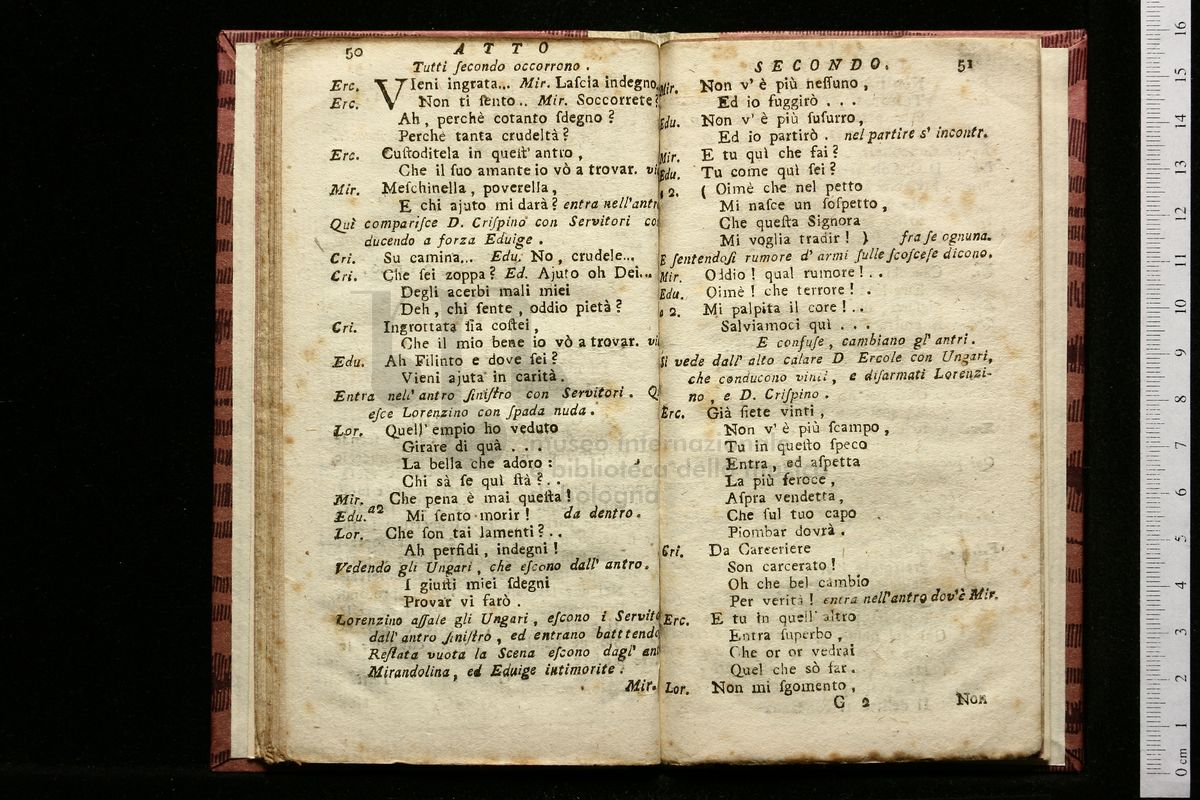 50 ATTO
Tutti ſecondo occorrono.
Erc. VIeni ingrata... Mir. Laſcia indegno
Erc. Non ti ſento.. Mir. Soccorrete?
Ah, perchè cotanto ſdegno?
Perchè tanta crudeltà?
Erc. Cuſtoditela in queſt' antro,
Che il ſuo amante io vò a trovar. vi
Mir. Meſchinella, poverella,
E chi ajuto mi darà? entra nell'antr
Quì compariſce D. Criſpino con Servitori co
ducendo a forza Eduige.
Cri. Su camina... Edu. No, crudele...
Cri. Che ſei zoppa? Ed. Ajuto oh Dei...
Degli acerbi mali miei
Deh, chi ſente, oddio pietà?
Cri. Ingrottata ſia coſtei,
Che il mio bene io vò a trovar. vi
Edu. Ah Filinto e dove ſei?
Vieni ajuta in carità.
Entra nell' antro ſiniſtro con Servitori. Q
eſce Lorenzino con ſpada nuda.
Lor. Quell' empio ho veduto
Girare di quà ...
La bella che adoro:
Chi sà ſe quì ſtà?..
Mir. Che pena è mai queſta!
Edu. a2 Mi ſento morir! da dentro.
Lor. Che ſon tai lamenti?..
Ah perfidi, indegni!
Vedendo gli Ungari, che eſcono dall' antro.
I giuſti miei ſdegni
Provar vi farò.
Lorenzino aſſale gli Ungari, eſcono i Servito
dall' antro ſiniſtro, ed entrano batttendo
Reſtata vuota la Scena eſcono dagl' ant
Mirandolina, ed Eduige intimorite.
Mir.
SECONDO. 51
Mir. Non v' è più neſſuno,
Ed io fuggirò ...
Edu. Non v' è più ſuſurro,
Ed io partirò. nel partire s' incontr.
Mir. E tu quì che fai?
Edu. Tu come quì ſei?
a 2. ( Oimè che nel petto
Mi naſce un ſoſpetto,
Che queſta Signora
Mi voglia tradir! ) fra ſe ognuna.
E ſentendoſi rumore d' armi ſulle ſcoſceſe dicono.
Mir. Oddio! qual rumore!..
Edu. Oimè! che terrore! .
a 2. Mi palpita il core!..
Salviamoci quì ...
E confuſe, cambiano gl' antri.
Si vede dall' alto calare D Ercole con Ungari,
che conducono vinti, e diſarmati Lorenzi-
no, e D. Criſpino.
Erc. Già ſiete vinti,
Non v' è più ſcampo,
Tu in queſto ſpeco
Entra, ed aſpetta
La più feroce,
Aſpra vendetta,
Che ſul tuo capo
Piombar dovrà.
Cri. Da Carceriere
Son carcerato!
Oh che bel cambio
Per verità! entra nell'antro dov'è Mir.
Erc. E tu in quell' altro
Entra ſuperbo,
Che or or vedrai
Quel che sò far.
Lor. Non mi ſgomento,
G 2 Non
museo internazionale
biblioteca della musica
bologna
16
15
14
13
12
11
10
9
8
7
6
5
4
3
2
1
0 cm